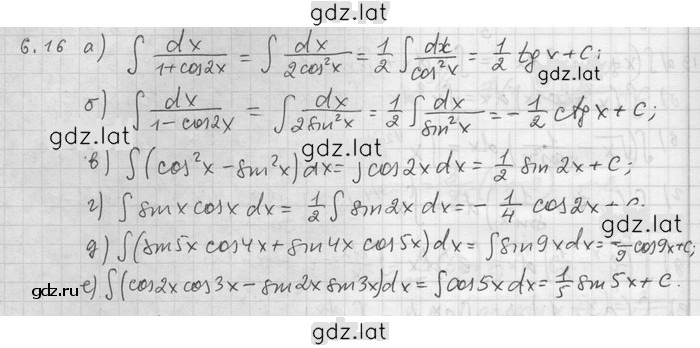 gdz.lat
6.16 а) ∫ dx/(1+cos2x) = ∫ dx/(2cos²x) = 1/2 ∫ dx/cos²x = 1/2 tg x + C;
gdz.lat
б) ∫ dx/(1-cos2x) = ∫ dx/(2sin²x) = 1/2 ∫ dx/sin²x = - 1/2 ctg x + C;
gdz.lat gdz.lat
в) ∫ (cos²x - sin²x) dx = ∫ cos2x dx = 1/2 sin 2x + C;
г) ∫ sin x cos x dx = 1/2 ∫ sin 2x dx = - 1/4 cos 2x + C.
gdz.lat
д) ∫ (sin5x cos4x + sin4x cos5x) dx = ∫ sin9x dx = - 1/9 cos9x + C;
gdz.lat
е) ∫ (cos2x cos3x - sin2x sin3x) dx = ∫ cos5x dx = 1/5 sin5x + C.
gdz.ru
gdz.lat